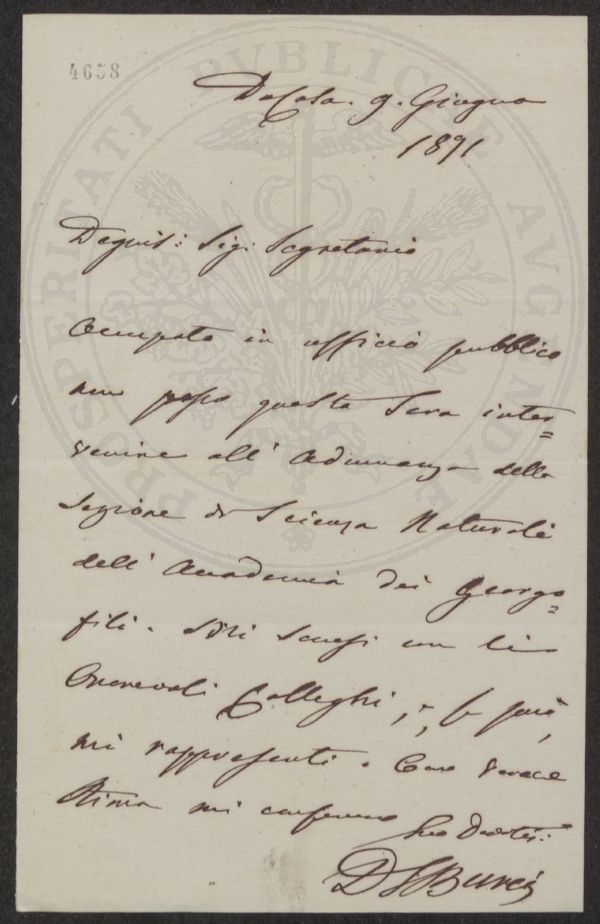 4658
PROSPERITATI PVBLICAE AVGENDAE
Da Casa. 9. Giugno
1891
Degnis: Sig: Segretario
Occupato in officio pubblico
non posso questa sera inter=
venire all' Adunanza della
Sezione di Scienza Naturale
dell' Accademia dei Georgo=
fili. Mi scusi con li
Onorevoli Colleghi, e, se può,
mi rappresenti. Con verace
stima mi confermo
Suo Devotis:
Burci